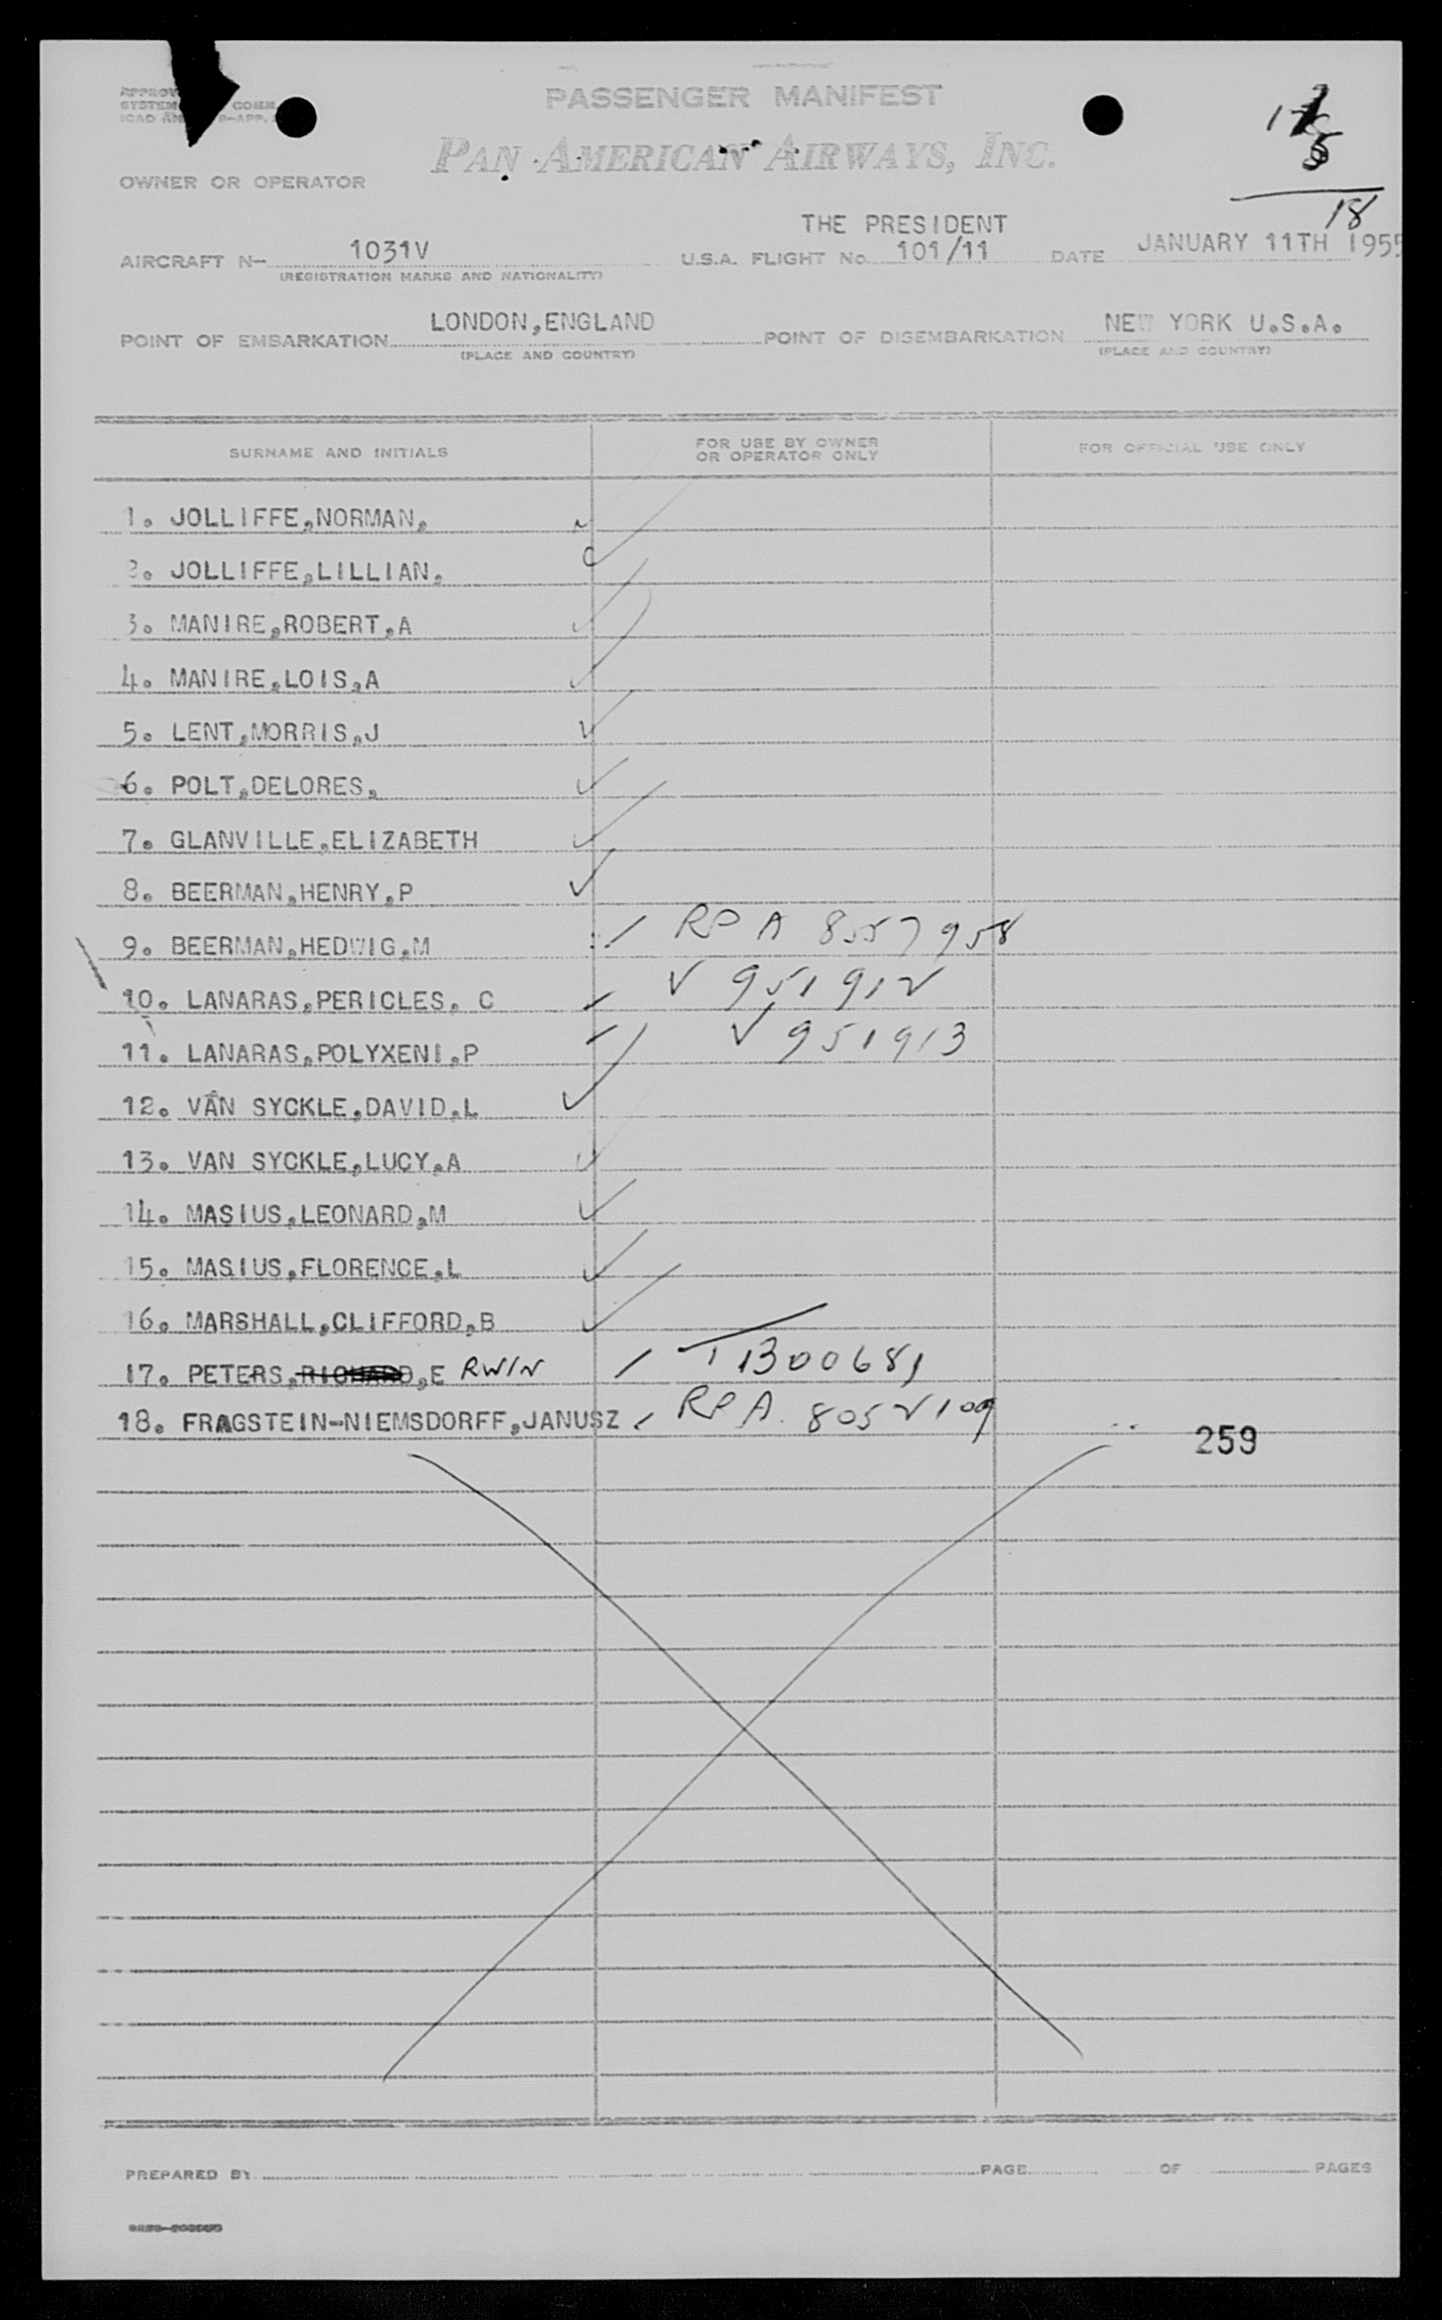 PASSENGER MANIFEST
PAN AMERICAN AIRWAYS, INC.
OWNER OR OPERATOR
18
THE PRESIDENT
AIRCRAFT N- 1031V U.S.A. FLIGHT No. 101/11 DATE JANUARY 11TH 1955
(REGISTRATION MARKS AND NATIONALITY)
POINT OF EMBARKATION LONDON,ENGLAND POINT OF DISEMBARKATION NEW YORK U.S.A.
(PLACE AND COUNTRY) (PLACE AND COUNTRY)
SURNAME AND INITIALS FOR USE BY OWNER OR OPERATOR ONLY FOR OFFICIAL USE ONLY
1. JOLLIFFE,NORMAN.
2. JOLLIFFE,LILLIAN.
3. MANIRE,ROBERT,A
4. MANIRE,LOIS,A
5. LENT,MORRIS,J
6. POLT,DELORES,
7. GLANVILLE,ELIZABETH
8. BEERMAN,HENRY,P
9. BEERMAN,HEDWIG,M RPA 8557958
10. LANARAS,PERICLES, C V 951912
11. LANARAS,POLYXENI,P V 951913
12. VAN SYCKLE,DAVID,L
13. VAN SYCKLE,LUCY,A
14. MASIUS,LEONARD,M
15. MASIUS,FLORENCE,L
16. MARSHALL,CLIFFORD,B
17. PETERS,RICHARD,E RWIN T1300681
18. FRAGSTEIN-NIEMSDORFF,JANUSZ RPA. 8052109
259
PREPARED BY PAGE OF PAGES